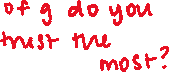 of g do you
trust the
most?